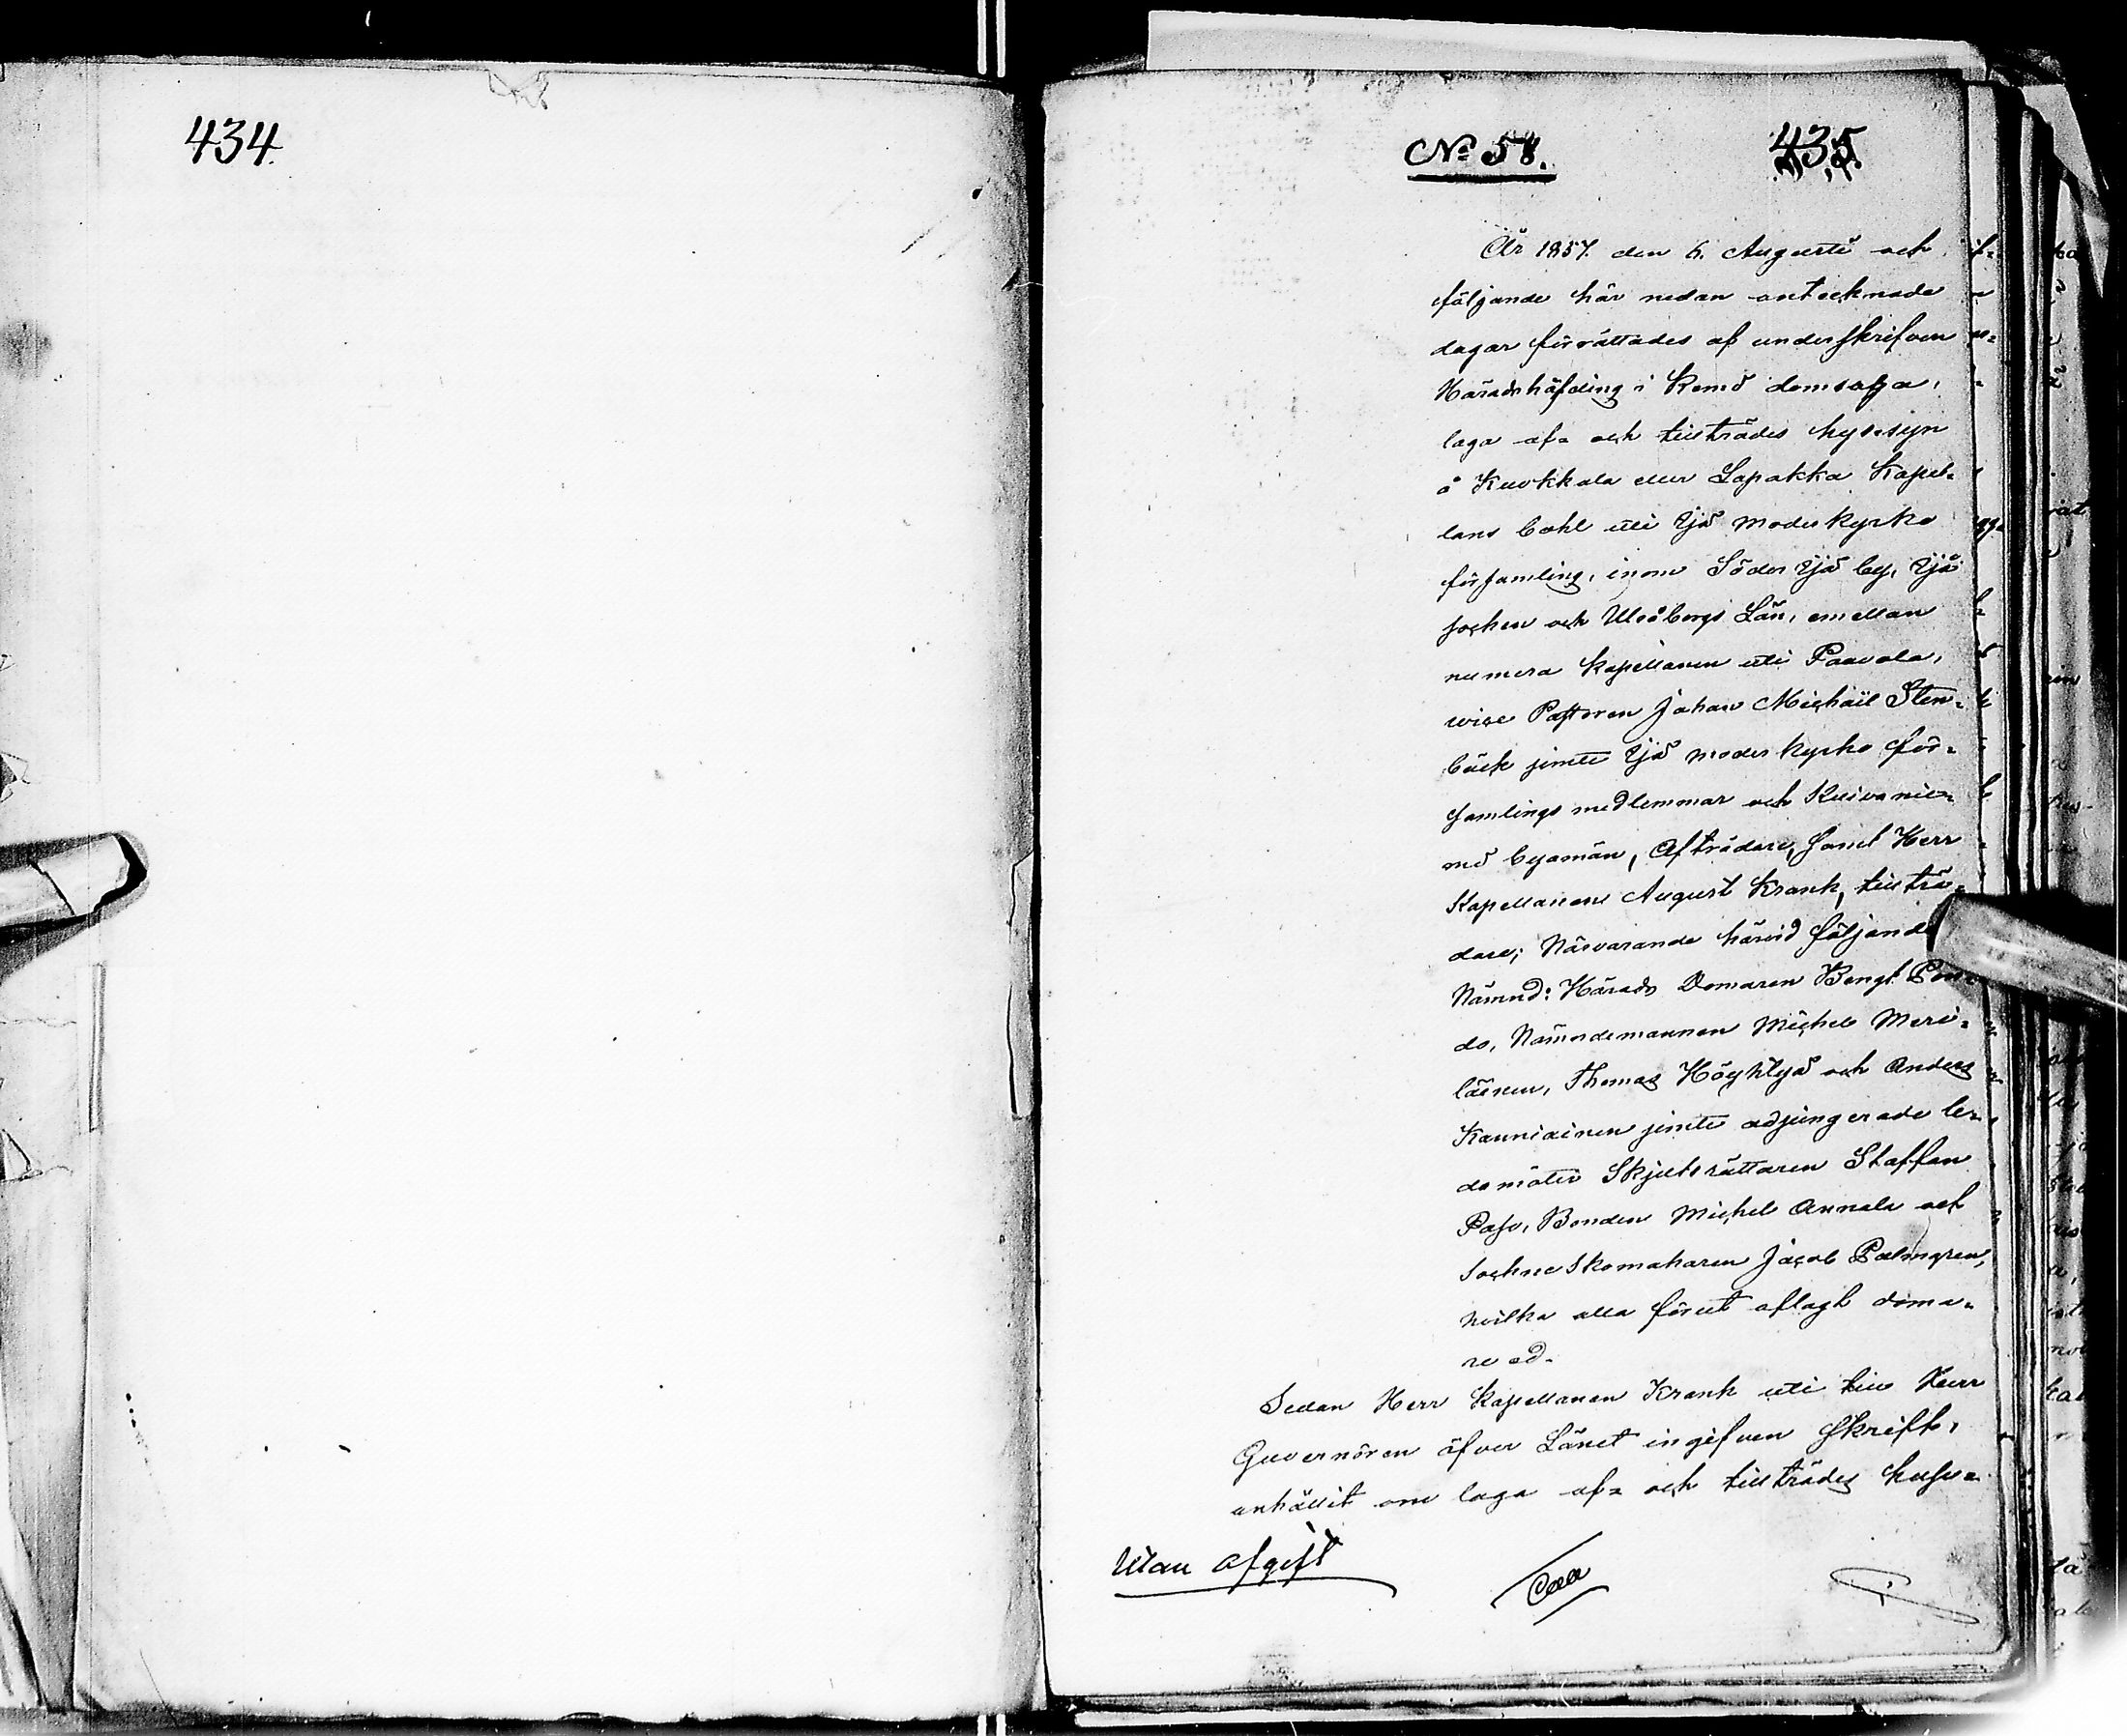 434
No 57.
435
År 1857. den 6. Augusti och
följande här nedan antecknade
dagar förrättades af underskrifven
Häradshöfding i Kemi domsaga,
laga af= och tillträdes hussyn
å Kuokkala eller Lapakka Kapel=
lans bohl uti Ijo moderkyrko
församling, inom Söder Ijo by, Ijo
socken och Uleåborgs Län, emellan
numera kapellanen uti Paavola,
vice Pastoren Johan Michaël Sten=
bäck jemte Ijo moderkyrko för=
samlings medlemmar och Kuivanie=
mi byamän, Afträdare, samt Herr
Kapellanen August Krank, tillträ=
dare; Närvarande härvid följande
Nämnd: Härads Domaren Bengt
do, Nämndemannen Michel Meri=
läinen, Thomas Höyhtyä och Anders
Kauniainen jemte adjungerade le=
damöter Skjutsrättaren Staffan
Paso, Bonden Michel Annala och
Sockne Skomakaren Jacob Palmgren,
hvilka alla förut aflagt doma=
re ed.
Sedan Herr Kapellanen Krank uti till Herr
Guvernören öfver Länet ingifven skrift,
anhållit om laga af= och tillträdes husesy=
Utan afgift